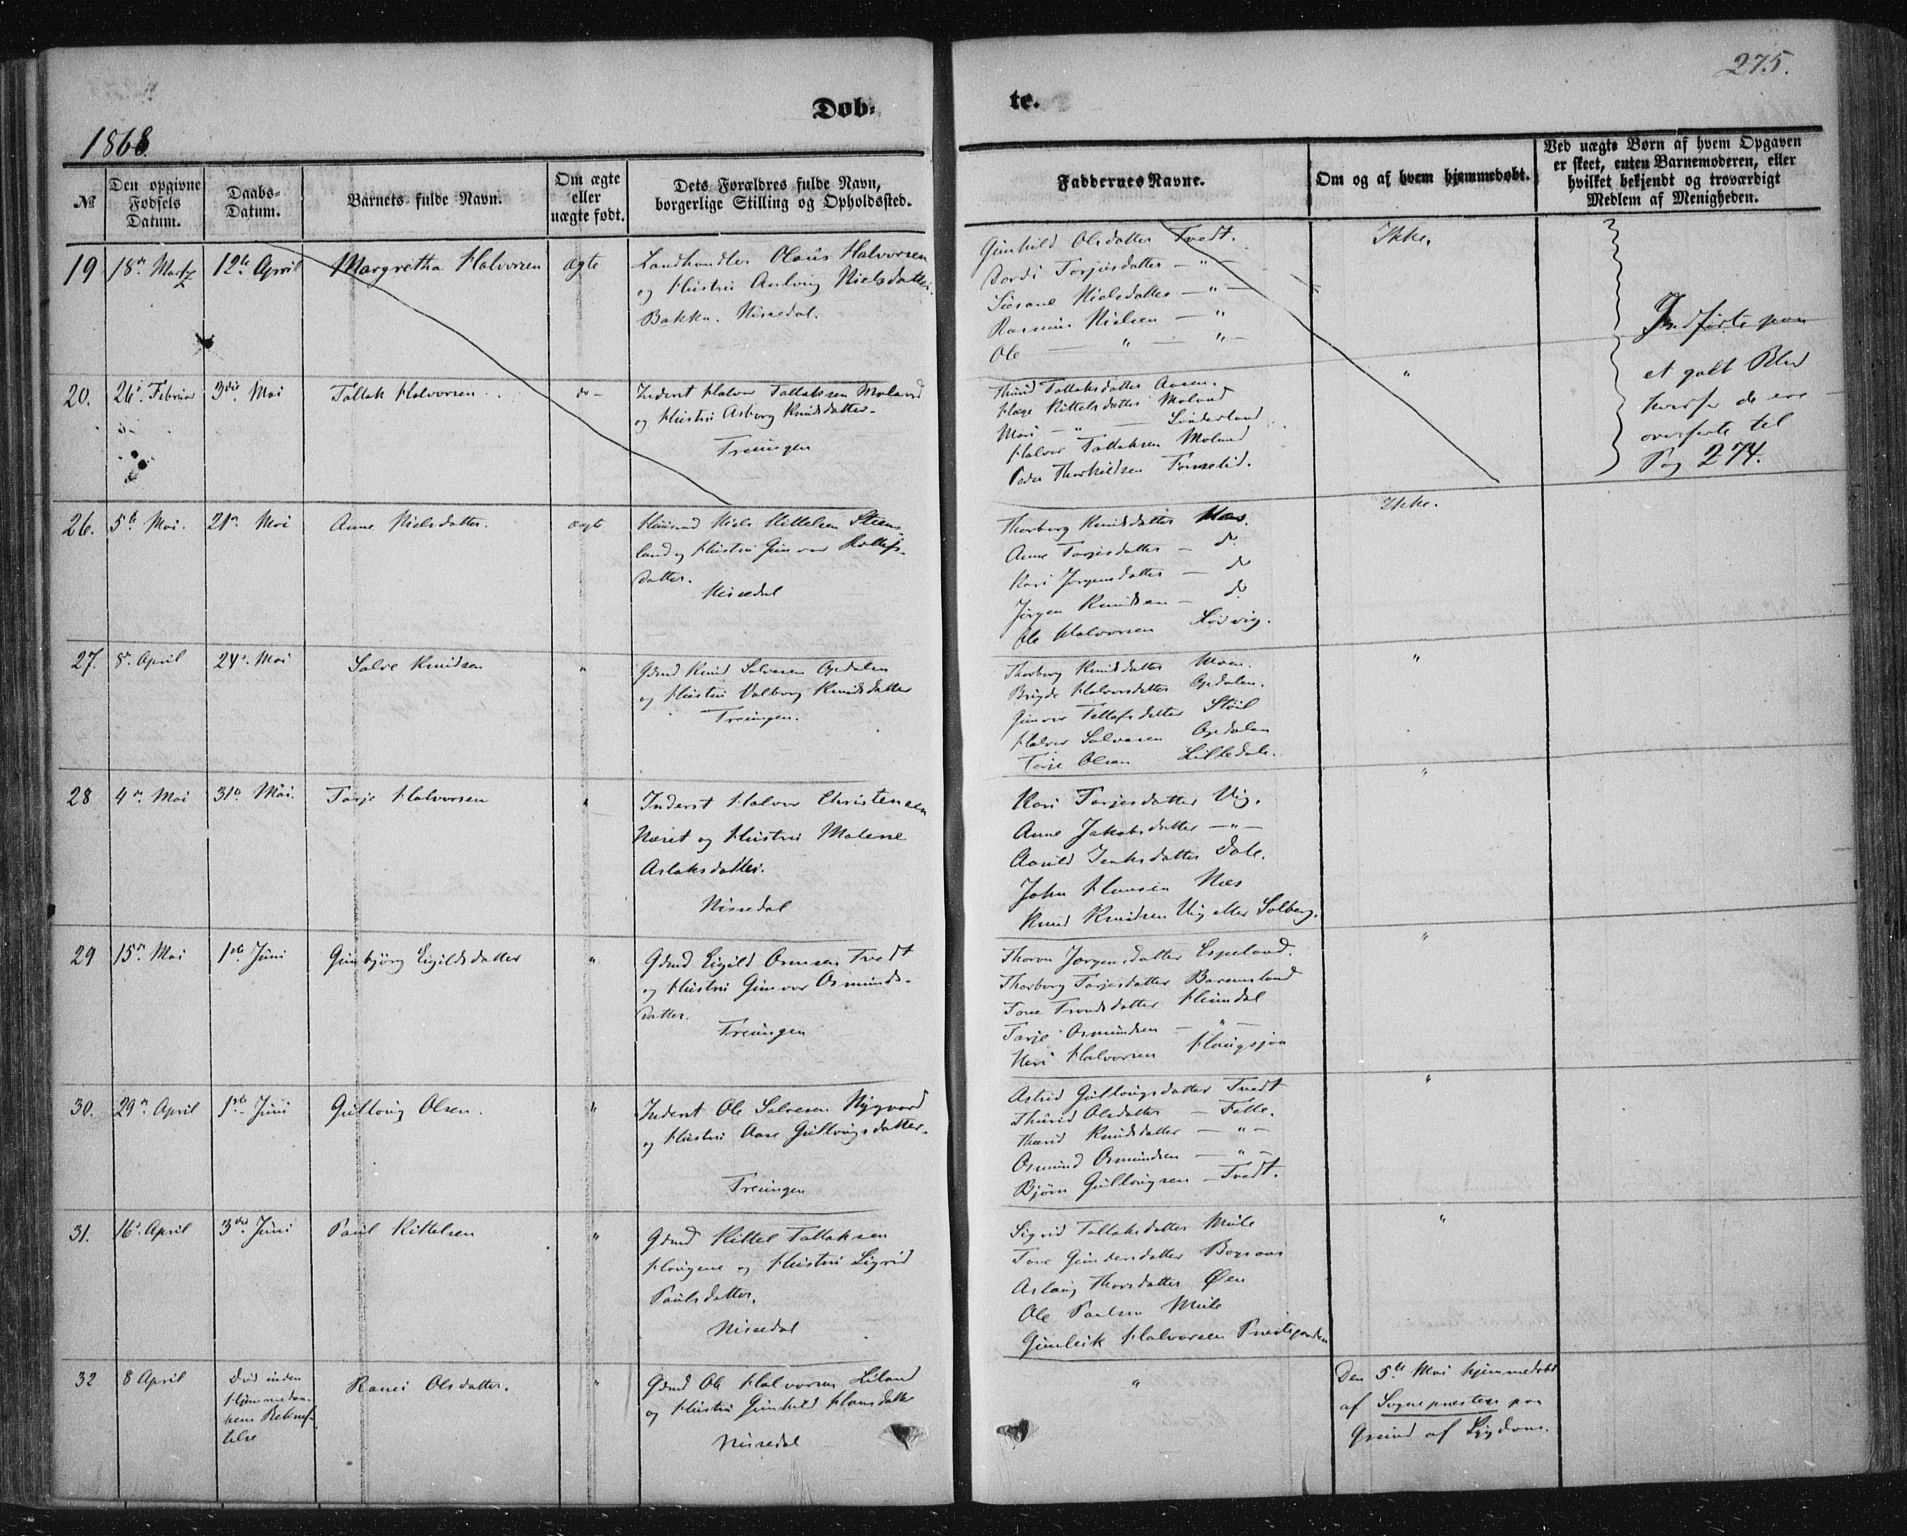 275.
Døb- te.
1868
№
Den opgivne Fødsels Datum.
Daabs-Datum.
Barnets fulde Navn.
Om ægte eller uægte født.
Dets Forældres fulde Navn, borgerlige Stilling og Opholdssted.
Faddernes Navne.
Om og af hvem hjemmedøbt.
Ved uægte Børn af hvem Opgaven er skeet, enten Barnemoderen, eller hvilket bekjendt og troværdigt Medlem af Menigheden.
19 18de Martz 12te April Margretha Halvorsen ægte
Landhandler Olaus Halvorsen
og Hustru Anlaug Nielsdatter
Bakka. Nissedal.
Gunhild Olsdatter Tvedt.
Dordi Torjusdatter — " —
Susane Nielsdatter — " —
Rasmus Nielsen — "
Ole — " — " —
Ikke.
Indførte paa
et galt Blad
hvorfor de ere
overførte til
Pag 274.
20. 26de Februar 3die Mai Tallak Halvorsen do
Inderst Halvor Tallaksen Moland
og Hustru Asborg Knudsdatter
Treungen
Thurid Tallaksdatter Aasen
Hæge Kittelsdatter Moland
Mari — " — Sønderland
Halvor Tallaksen Moland
Peder Thorkildsen Fonselid.
"
26. 5te Mai. 21de Mai Anne Nielsdatter. ægte
Huusmd Niels Kittelsen Steens-
land og Hustru Gunvor Rollefs-
datter.
Nissedal
Thorborg Knudsdatter Næs.
Anne Torjesdatter — do
Kari Jørgensdatter — do
Jørgen Knudsen — do
Ole Halvorsen
Ikke.
27. 8de April 24de Mai Salve Knudsen "
Gdmd Knud Salvesen Opdalen
og Hustru Valborg Knudsdatter
Treungen.
Thorborg Knudsdatter Moen.
Brigde Halvorsdatter Opdalen.
Gunvor Tellefsdatter Støil
Halvor Salvesen Opdalen
Torje Olsen Lilledal.
"
28. 4de Mai 31te Mai. Torje Halvorsen "
Inderst Halvor Christensen
Næset og Hustru Malene
Aslaksdatter.
Nissedal
Kari Torjesdatter Vig.
Anne Jakobsdatter — " —
Aasild Isaksdatter Dale.
John Hansen Næs
Knud Knudsen Vig eller Solberg.
"
29 15de Mai 1ste Juni Gunbjørg Eigildsdatter "
Gdmd Eigild Osmsen Tvedt
og Hustru Gunvor Osmunds-
datter.
Treungen
Thorun Jørgensdatter Espeland.
Thorborg Torjesdatter Barensland
Tone Trondsdatter Heimdal
Torje Osmundsen — " —
Neri Halvorsen Haugsjaa
"
30. 29de April 1ste Juni Gullaug Olsen. "
Inderst Ole Salvesen Nygaard
og Hustru Aase Gullaugsdatter.
Treungen
Astrid Gullaugsdatter Tvedt
Thurid Olsdatter — Felle.
Thurid Knudsdatter — " —
Osmund Osmundsen — " —
Bjørn Gullaugsen — Tvedt.
"
31. 16de April 3die Juni Paul Kittelsen "
Gdmd Kittel Tallaksen
Haugene og Hustru Sigrid
Paulsdatter.
Nissedal
Sigrid Tallaksdatter Mule
Tone Gundersdatter
Aslaug Thorsdatter Øen
Ole Paulsen Mule
Gunleik Halvorsen Prestgaarden
"
32 8 April
Død inden
Hjemmedaa-
bens Bekræf-
telse
Ranei Olsdatter. "
Gdmd Ole Halvorsen Liland
og Hustru Gunhild Hansdatter
Nissedal
"
Den 5te Mai hjemmedøbt
af Sognepresten paa
Grund af Sygdom.